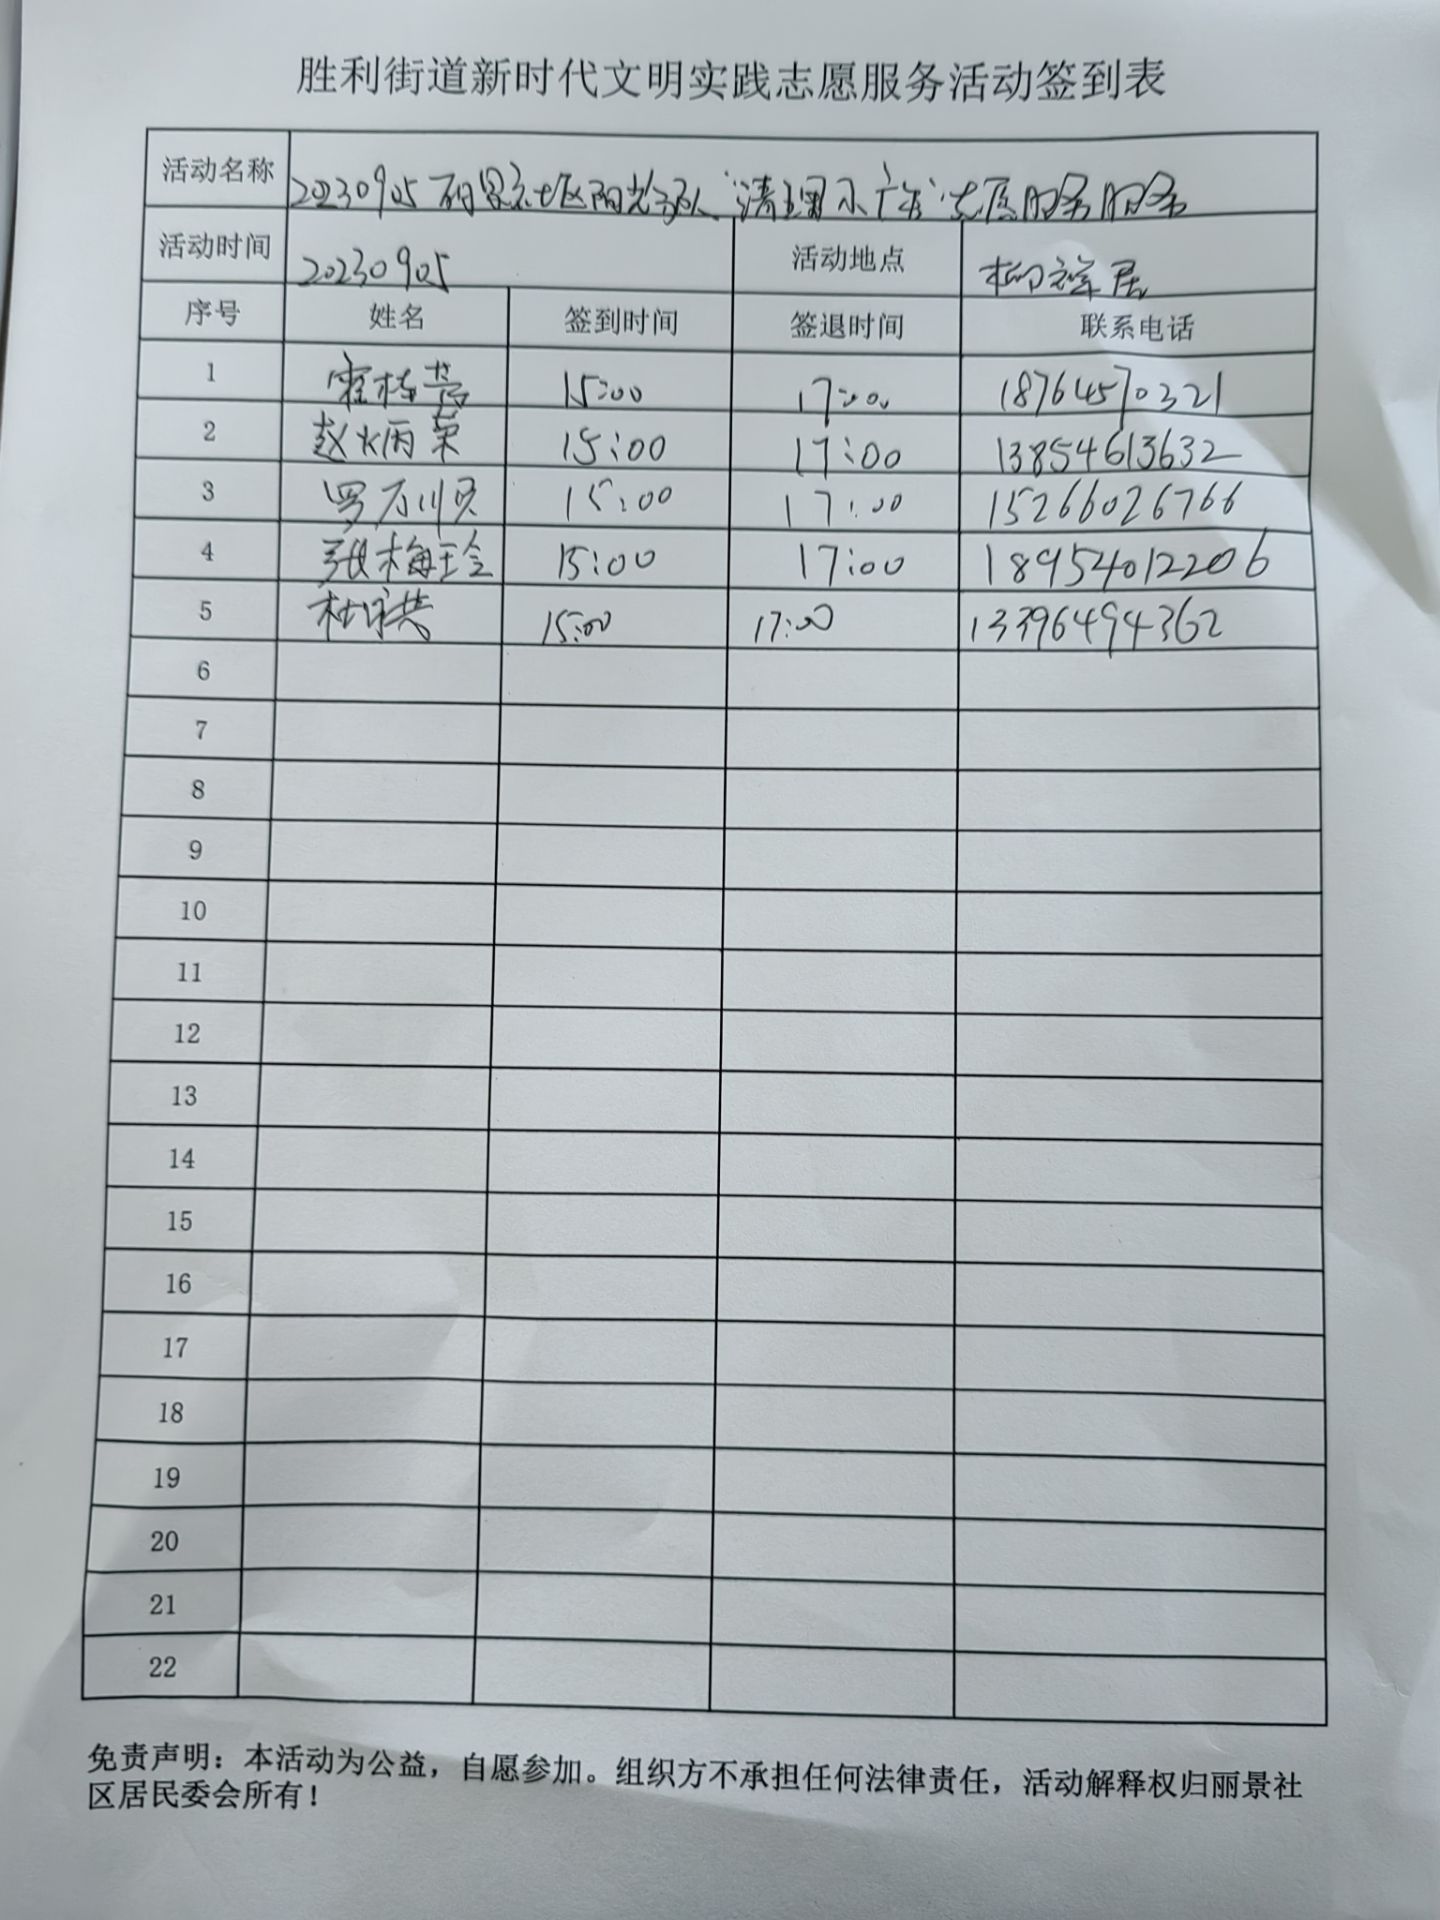 胜利街道新时代文明实践志愿服务活动签到表
活动名称 20230905丽景社区阳光家人“清理小广告”志愿服务服务
活动时间 20230905 活动地点 柳祥居
序号 姓名 签到时间 签退时间 联系电话
1 霍梅荣 15:00 17:00 18764570321
2 赵炳荣 15:00 17:00 13854613632
3 罗万顺 15:00 17:00 15266026766
4 张梅玲 15:00 17:00 18954012206
5 杜洪 15:00 17:00 13396494362
6
7
8
9
10
11
12
13
14
15
16
17
18
19
20
21
22
免责声明：本活动为公益，自愿参加。组织方不承担任何法律责任，活动解释权归丽景社
区居民委会所有！